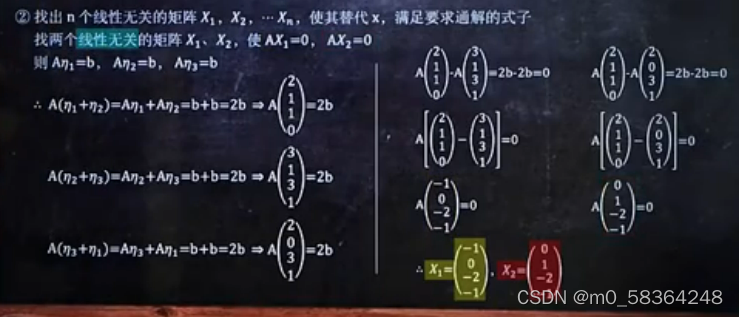 ② 找出 n 个线性无关的矩阵 X₁，X₂，⋯Xₙ，使其替代 x，满足要求通解的式子
找两个线性无关的矩阵 X₁、X₂，使 AX₁=0，AX₂=0
则 Aη₁=b，Aη₂=b，Aη₃=b
∴ A(η₁+η₂)=Aη₁+Aη₂=b+b=2b ⇒ A(2 1 1 0)=2b
A(η₂+η₃)=Aη₂+Aη₃=b+b=2b ⇒ A(3 1 3 1)=2b
A(η₃+η₁)=Aη₃+Aη₁=b+b=2b ⇒ A(2 0 3 1)=2b
A(2 1 1 0)-A(3 1 3 1)=2b-2b=0
A[(2 1 1 0)-(3 1 3 1)]=0
A(-1 0 -2 -1)=0
A(2 1 1 0)-A(2 0 3 1)=2b-2b=0
A[(2 1 1 0)-(2 0 3 1)]=0
A(0 1 -2 -1)=0
∴ X₁=(-1 0 -2 -1)，X₂=(0 1 -2 -1)
CSDN @m0_58364248